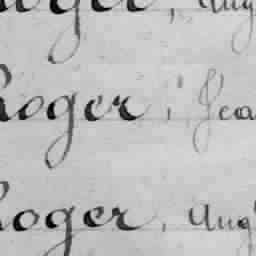 Roger, Aug
Roger, Jea
Roger, Aug